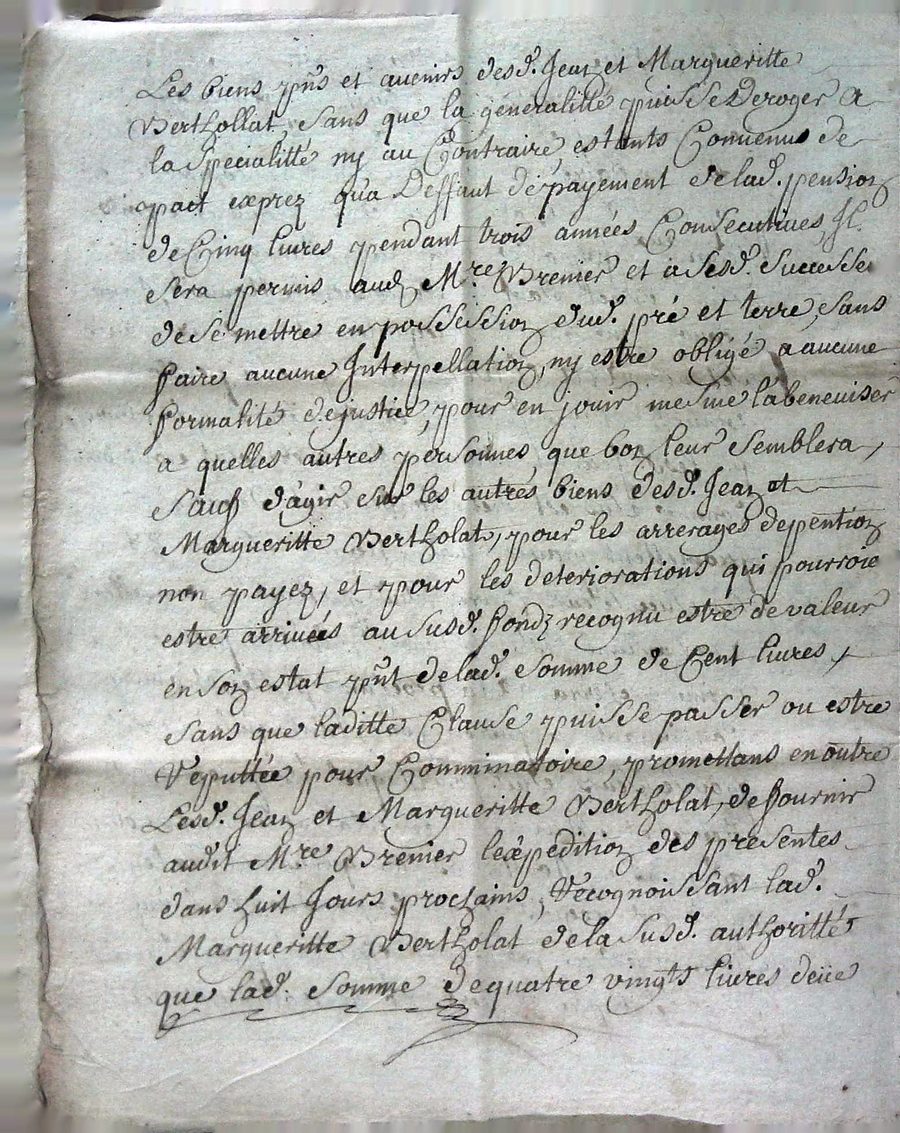 Les biens pnt̃s et avenirs desd. Jean et Margueritte
Berthollat, sans que la generalitté puisse Deroger a
la specialitté ny au Contraire, estants Convenus de
pact exprez qu'a Deffaut de payement de lad. pension
de Cinq livres pendant trois années Consecutives, Il
sera permis aud. Mre Brenier et a sesd. successe
de se mettre en possession dud. pré et terre, sans
faire aucune Interpellation, ny estre obligé a aucune
formalité de justice, pour en jouir mesme labeneviser
a quelles autres personnes que bon leur semblera,
sauf d'agir sur les autres biens desd. Jean et
Margueritte Bertholat, pour les arrerages de pention
non payez, et pour les deteriorations qui pourroie
estre arrivées au susd. fondz recognu estre de valeur
en son estat pnt̃ de lad. somme de Cent livres,
sans que laditte Clause puisse passer ou estre
reputtée pour Comminatoire, promettans en outre
Lesd. Jean et Margueritte Bertholat, de fournir
audit Mre Brenier lexpedition des presentes
dans huit Jours prochains, recognoissant lad.
Margueritte Bertholat de la susd. authoritté
que lad. somme de quatre vingts livres deüe